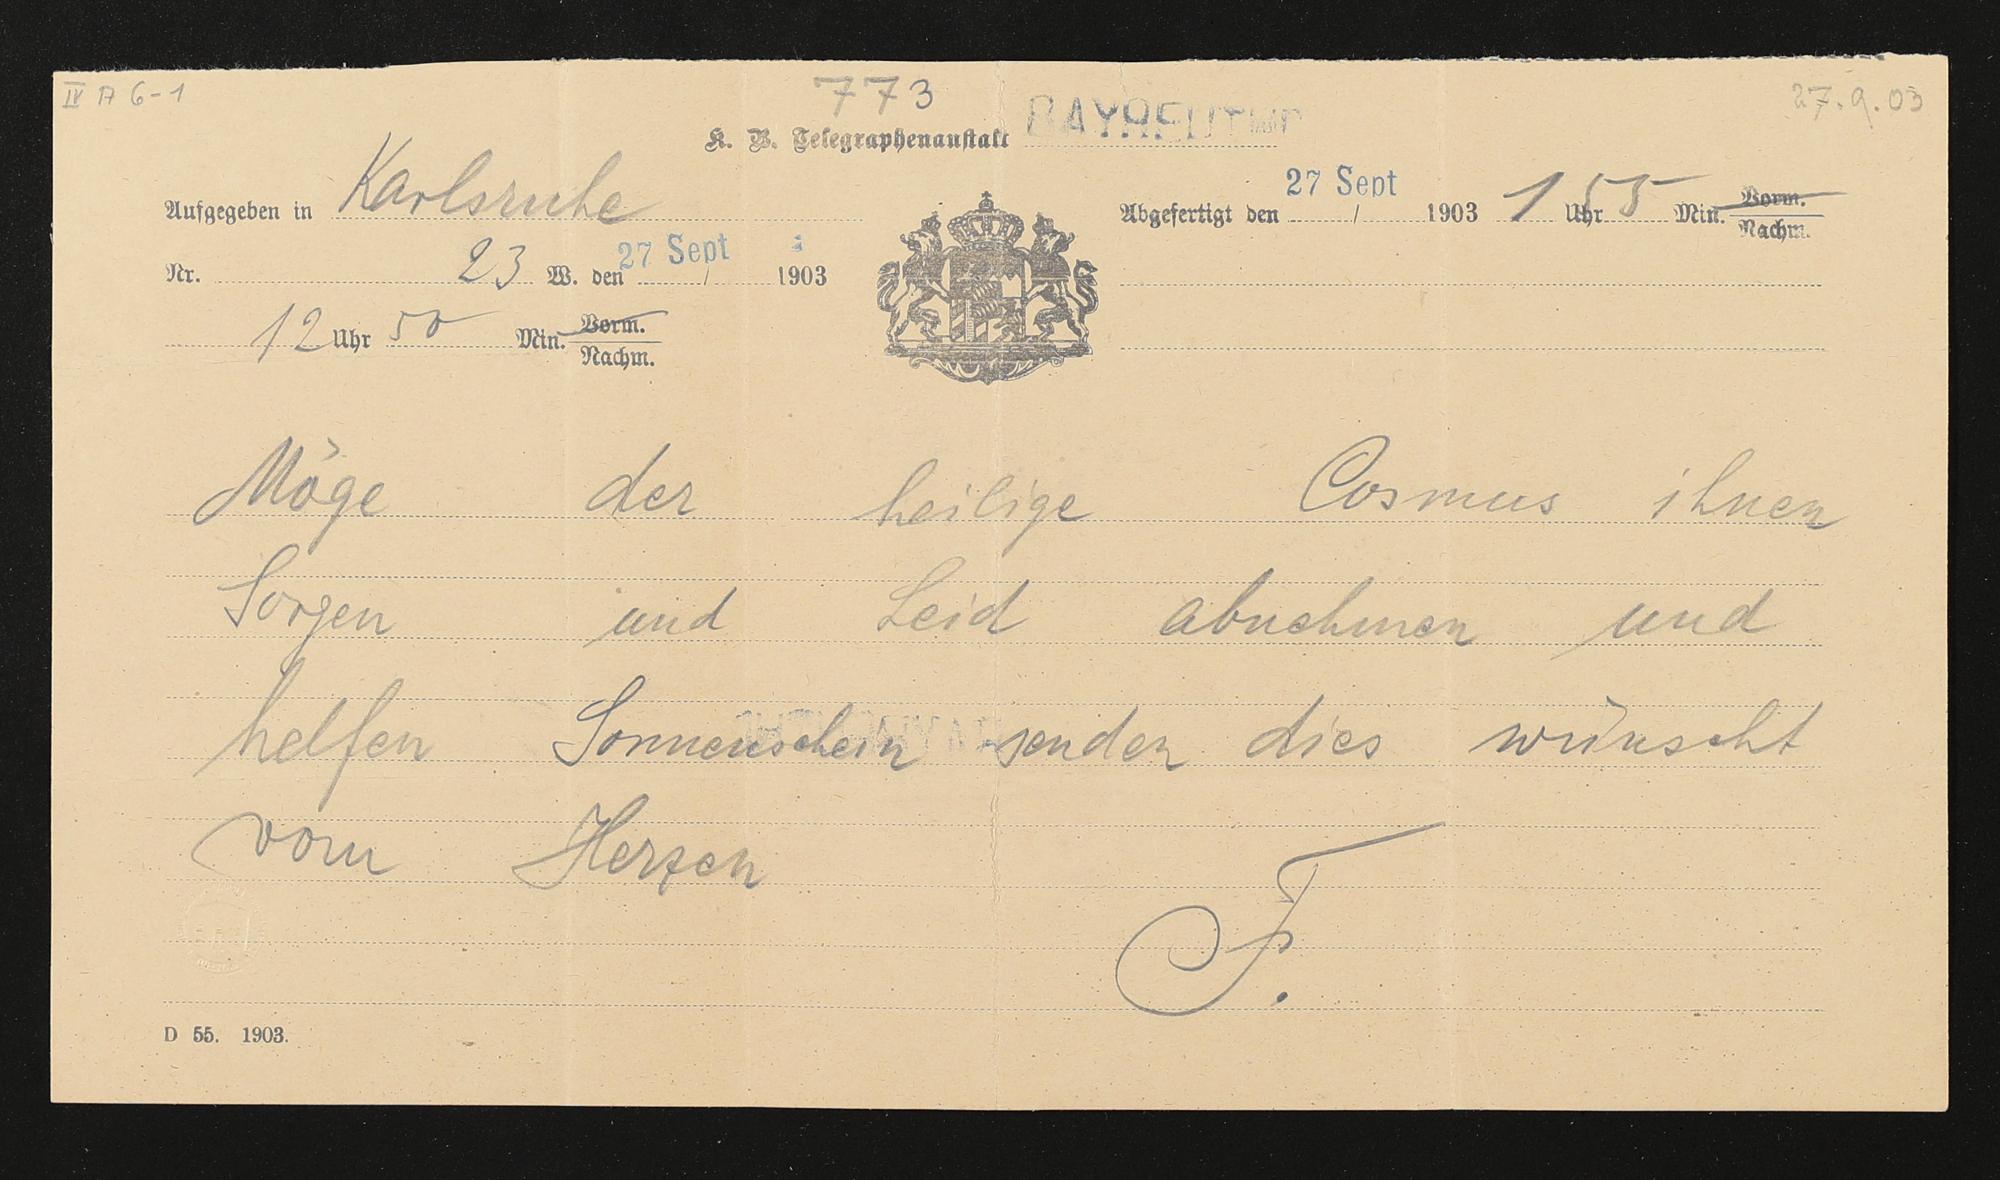 IV A 6-1
773
27.9.03
K. B. Telegraphenanstalt BAYREUTH
Aufgegeben in Karlsruhe
Nr. 23 W. den 27 Sept / 1903
12 Uhr 50 Min. Vorm. Nachm.
Abgefertigt den 27 Sept / 1903 1 Uhr 55 Min. Vorm. Nachm.
Möge der heilige Cosmus ihnen
Sorgen und Leid abnehmen und
helfen Sonnenschein senden dies wünscht
vom Herzen
F.
D 55. 1903.